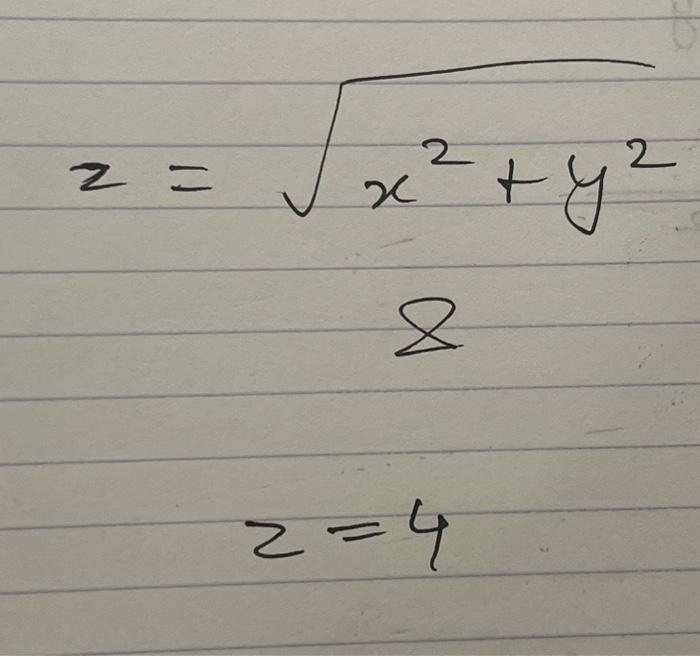 z = √(x² + y²)
&
z = 4